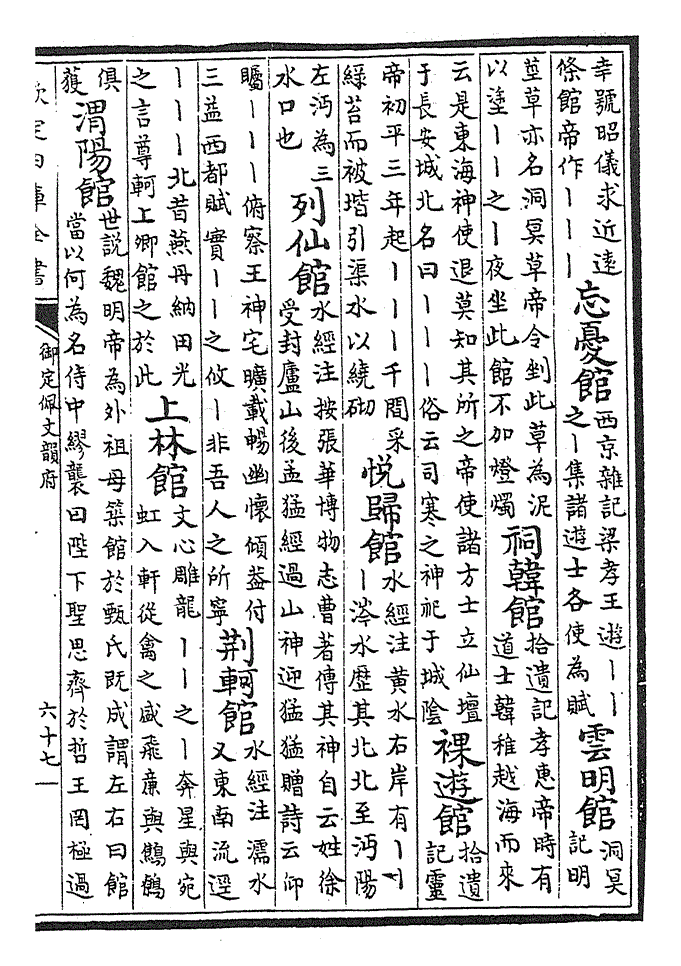 幸號昭儀求近遠
條館帝作丨丨丨
忘憂館
西京雜記梁孝王遊丨丨
之丨集諸遊士各使為賦
雲明館
洞冥
記明
莖草亦名洞冥草帝令剉此草為泥
以塗丨丨之丨夜坐此館不加燈燭
祠韓館
拾遺記孝惠帝時有
道士韓稚越海而來
云是東海神使退莫知其所之帝使諸方士立仙壇
于長安城北名曰丨丨丨俗云司寒之神祀于城陰
裸遊館
拾遺
記靈
帝初平三年起丨丨丨千間采
綠苔而被堦引渠水以繞砌
悅歸館
水經注黄水右岸有丨丨
丨涔水歴其北北至沔陽
左沔為三
水口也
列仙館
水經注按張華博物志曹著傳其神自云姓徐
受封廬山後孟猛經過山神迎猛猛贈詩云仰
矚丨丨丨俯察王神宅曠載暢幽懷傾蓋付
三益西都賦實丨丨之攸丨非吾人之所寧
荆軻館
水經注濡水
又東南流逕
丨丨丨北昔燕丹納田光
之言尊軻上卿館之於此
上林館
文心雕龍丨丨之丨奔星與宛
虹入軒從禽之盛飛廉與鷦鶴
俱
獲
渭陽館
世説魏明帝為外祖母築館於甄氏既成謂左右曰館
當以何為名侍中繆襲曰陛下聖思齊於哲王罔極過
欽定四庫全書
御定佩文韻府
六十七丨